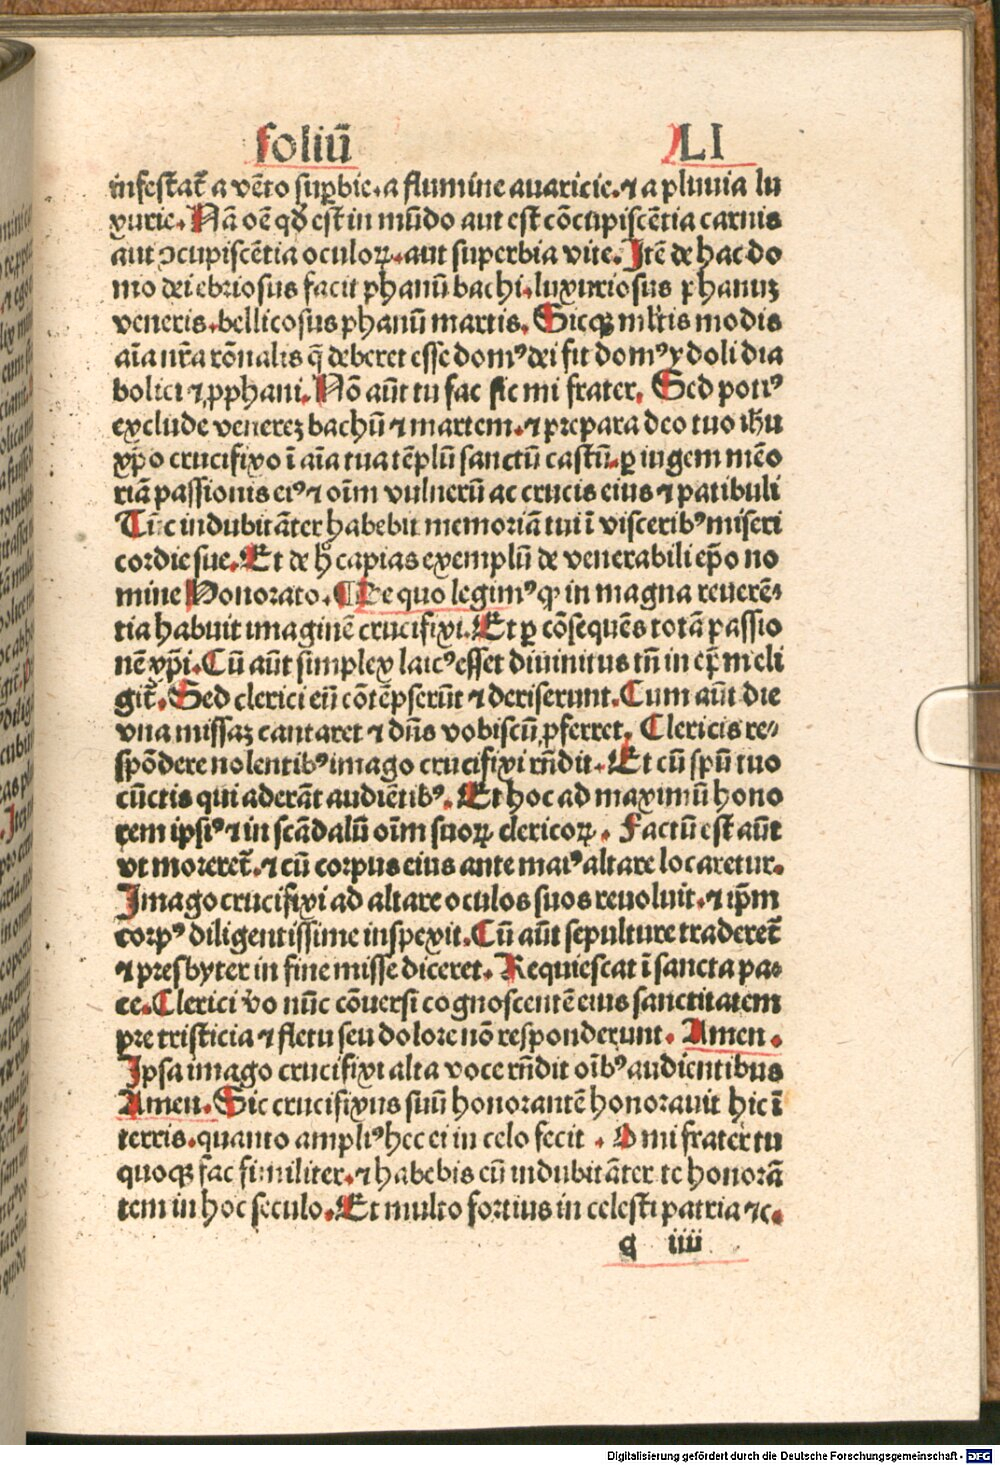 foliū LI
infestat᷑ a vēto sup̱bie. a flumine auaricie. ⁊ a pluuia lu
xurie. Nā oē qḋ est in mūdo aut est cōcupiscētia carnis
aut ꝯcupiscētia oculoꝝ. aut superbia vite. Itē de hac do
mo dei ebriosus facit phanū bachi. luxuriosus phanuꝫ
veneris. bellicosus phanū martis. Sicqꝫ ml̓tis modis
aīa nr̄a rōnalis q̄ deberet esse domꝰ dei fit domꝰ ydoli dia
bolici ⁊ ꝓphani. Nō aūt tu fac sic mi frater. Sed potiꝰ
exclude venereꝫ bachū ⁊ martem. ⁊ prepara deo tuo ihu
xp̄o crucifixo ī aīa tua tēplū sanctū castū. ꝑ iugem mēo
riā passionis eiꝰ ⁊ oīm vulnerū ac crucis eius ⁊ patibuli
Tūc indubitāter habebit memoriā tui ī visceribꝰ miseri
cordie sue. Et de h̄ capias exemplū de venerabili ep̄o no
mine Honorato. ¶ De quo legimꝰ ꝙ in magna reuerē⸗
tia habuit imaginē crucifixi. Et ꝑ cōsequēs totā passio
nē xp̄i. Cū aūt simplex laicꝰ esset diuinitus tn̄ in ep̄m eli
git᷑. Sed clerici eū cōtēpserūt ⁊ deriserunt. Cum aūt die
vna missaꝫ cantaret ⁊ dn̄s vobiscū ꝓferret. Clericis re⸗
spōdere nolentibꝰ imago crucifixi rn̄dit. Et cū spū tuo
cūctis qui aderāt audiētibꝰ. Et hoc ad maximū hono
rem ipsiꝰ ⁊ in scādalū oīm suoꝝ clericoꝝ. Factū est aūt
vt moreret᷑. ⁊ cū corpus eius ante maiꝰ altare locaretur.
Imago crucifixi ad altare oculos suos reuoluit. ⁊ ip̄m
corpꝰ diligentissime inspexit. Cū aūt sepulture traderet᷑
⁊ presbyter in fine misse diceret. Requiescat ī sancta pa⸗
ce. Clerici v̓o nūc cōuersi cognoscentē eius sanctitatem
pre tristicia ⁊ fletu seu dolore nō responderunt. Amen.
Ipsa imago crucifixi alta voce rn̄dit oībꝰ audientibus
Amen. Sic crucifixus suū honorantē honorauit hic ī
terris. quanto ampliꝰ hec ei in celo fecit. O mi frater tu
quoqꝫ fac similiter. ⁊ habebis eū indubitāter te honorā
tem in hoc seculo. Et multo fortius in celesti patria ⁊c.
g iiii
Digitalisierung gefördert durch die Deutsche Forschungsgemeinschaft - DFG